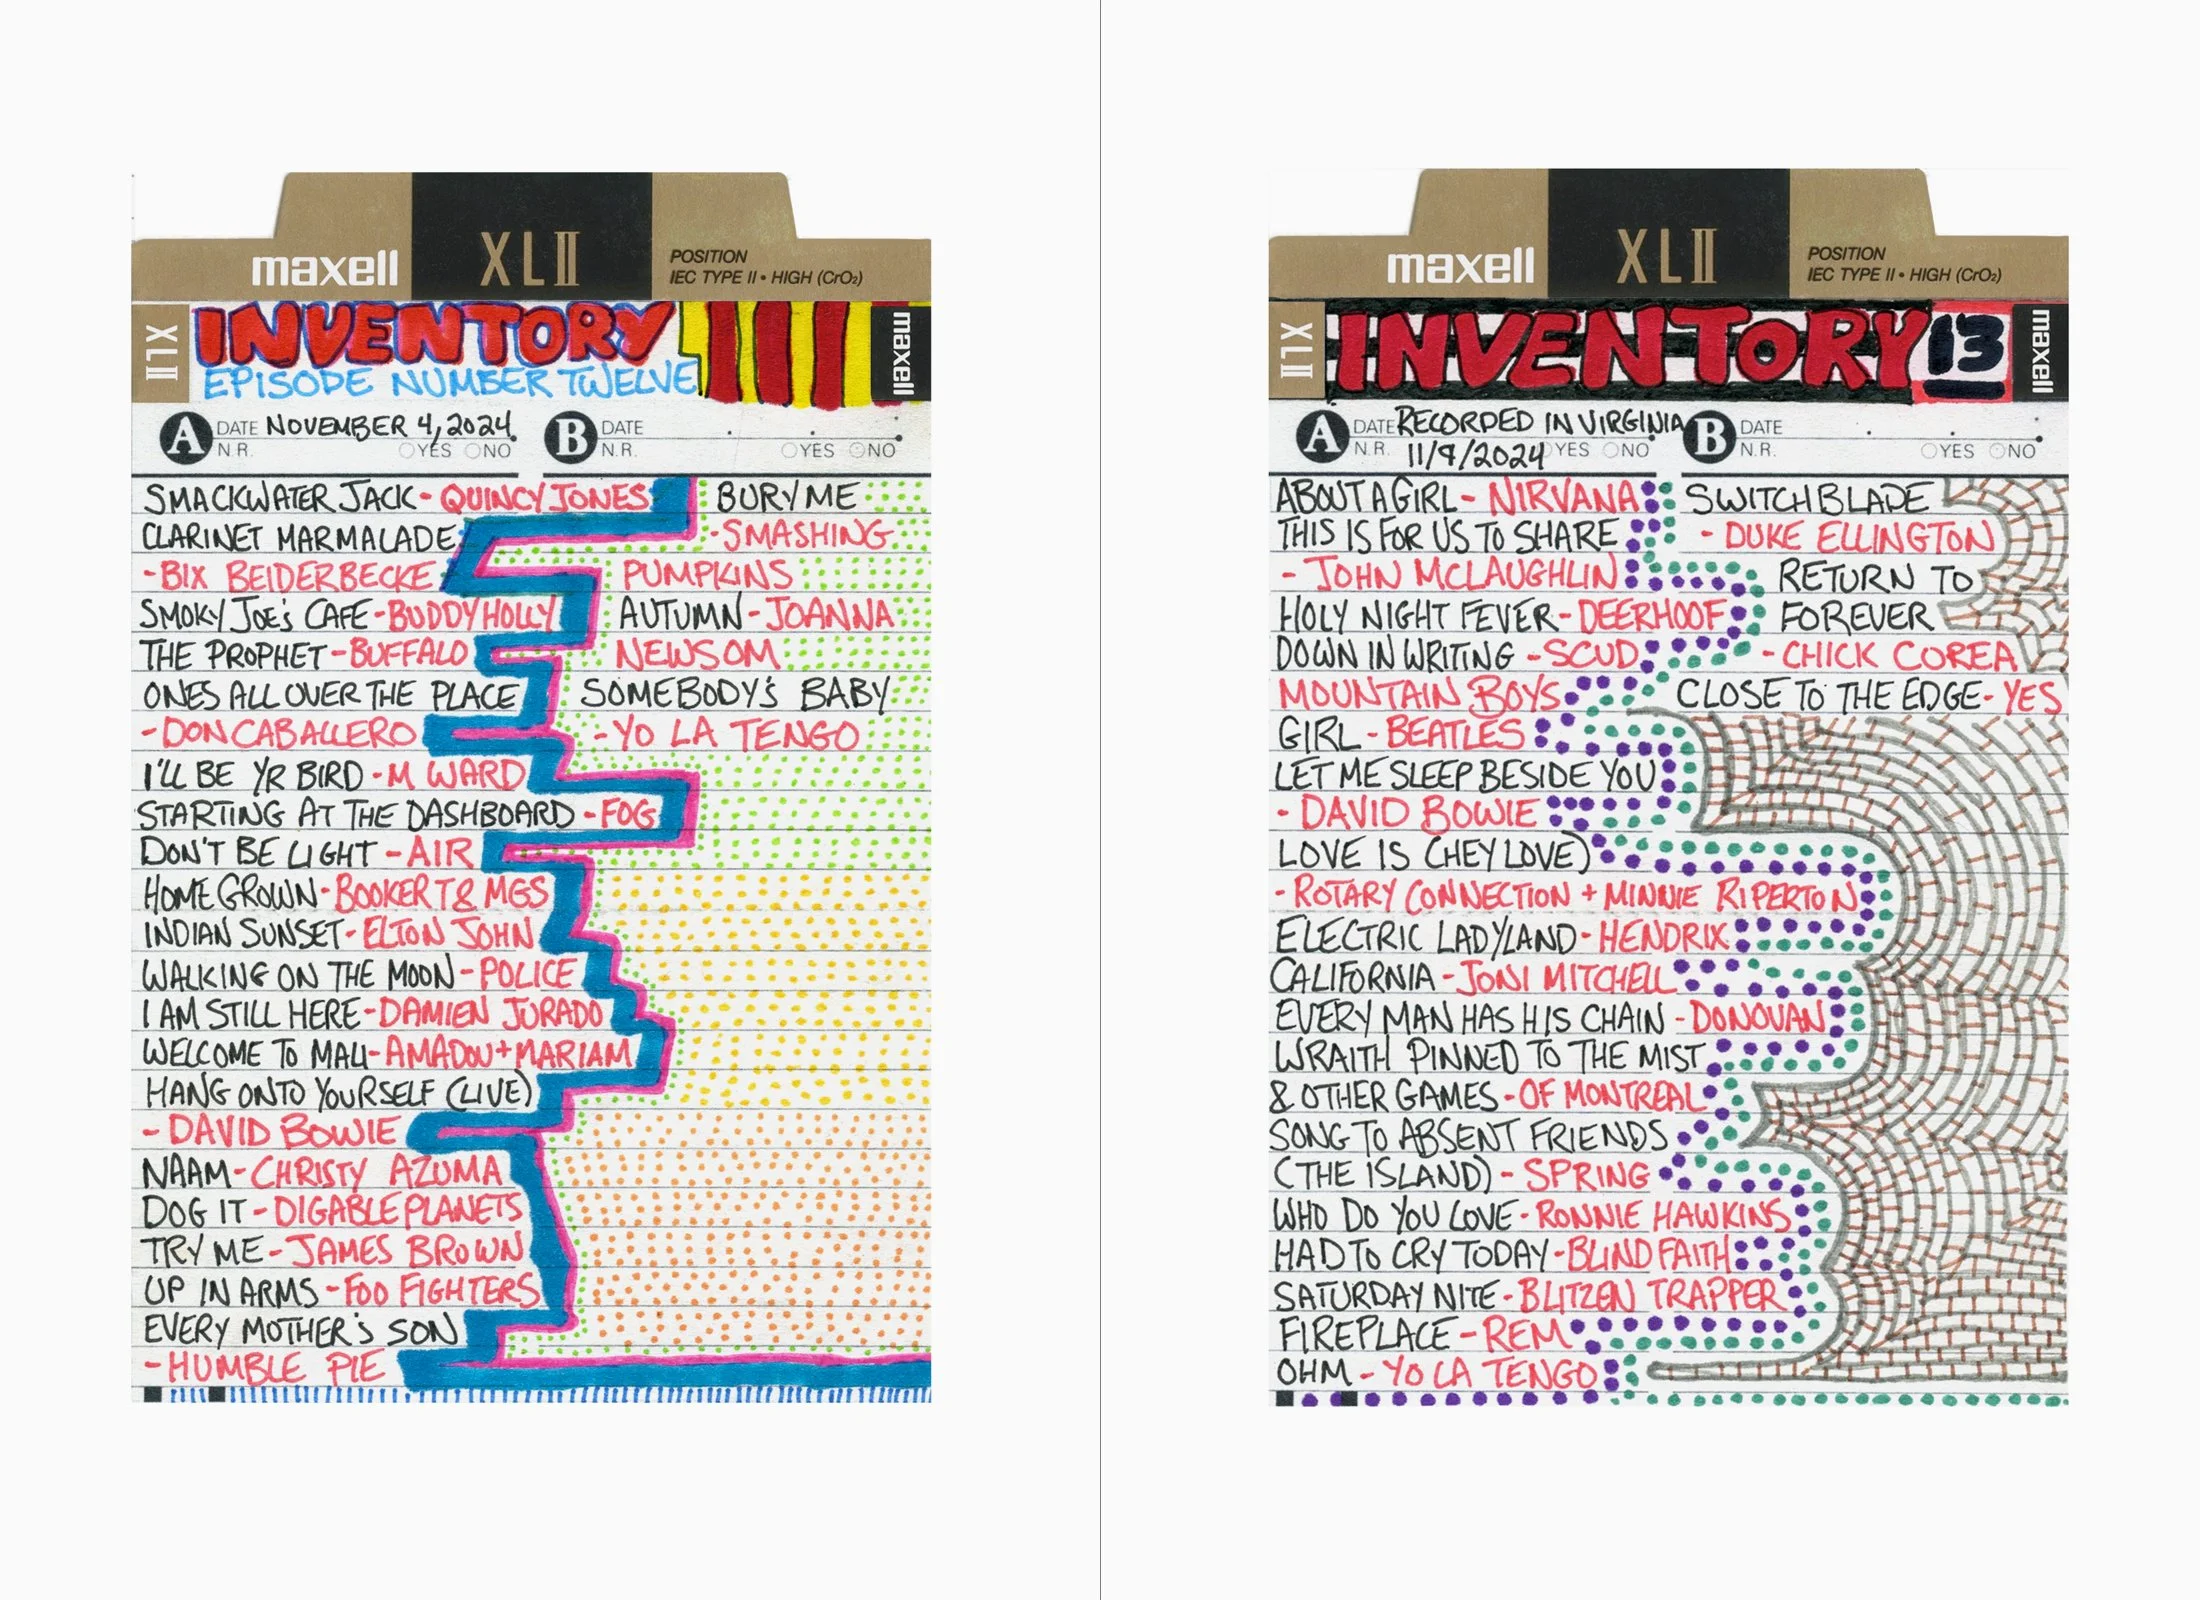 maxell XLII POSITION
IEC TYPE II • HIGH (CrO2)
XLII INVENTORY maxell
EPISODE NUMBER TWELVE
A DATE NOVEMBER 4, 2024 B DATE
N.R. YES NO N.R. YES NO
SMACKWATER JACK - QUINCY JONES
CLARINET MARMALADE
- BIX BEIDERBECKE
SMOKY JOE'S CAFE - BUDDY HOLLY
THE PROPHET - BUFFALO
ONES ALL OVER THE PLACE
- DON CABALLERO
I'LL BE YR BIRD - M WARD
STARTING AT THE DASHBOARD - FOG
DON'T BE LIGHT - AIR
HOME GROWN - BOOKER T & MGS
INDIAN SUNSET - ELTON JOHN
WALKING ON THE MOON - POLICE
I AM STILL HERE - DAMIEN JURADO
WELCOME TO MALI - AMADOU + MARIAM
HANG ONTO YOURSELF (LIVE)
- DAVID BOWIE
NAAM - CHRISTY AZUMA
DOG IT - DIGABLE PLANETS
TRY ME - JAMES BROWN
UP IN ARMS - FOO FIGHTERS
EVERY MOTHER'S SON
- HUMBLE PIE
BURY ME
- SMASHING
PUMPKINS
AUTUMN - JOANNA
NEWSOM
SOMEBODY'S BABY
- YO LA TENGO
maxell XLII POSITION
IEC TYPE II • HIGH (CrO2)
XLII INVENTORY 13 maxell
A DATE RECORDED IN VIRGINIA B DATE
N.R. 11/9/2024 YES NO N.R. YES NO
ABOUT A GIRL - NIRVANA
THIS IS FOR US TO SHARE
- JOHN MCLAUGHLIN
HOLY NIGHT FEVER - DEERHOOF
DOWN IN WRITING - SCUD
MOUNTAIN BOYS
GIRL - BEATLES
LET ME SLEEP BESIDE YOU
- DAVID BOWIE
LOVE IS (HEY LOVE)
- ROTARY CONNECTION + MINNIE RIPERTON
ELECTRIC LADYLAND - HENDRIX
CALIFORNIA - JONI MITCHELL
EVERY MAN HAS HIS CHAIN - DONOVAN
WRAITH PINNED TO THE MIST
& OTHER GAMES - OF MONTREAL
SONG TO ABSENT FRIENDS
(THE ISLAND) - SPRING
WHO DO YOU LOVE - RONNIE HAWKINS
HAD TO CRY TODAY - BLIND FAITH
SATURDAY NITE - BLITZEN TRAPPER
FIREPLACE - REM
OHM - YO LA TENGO
SWITCHBLADE
- DUKE ELLINGTON
RETURN TO
FOREVER
- CHICK COREA
CLOSE TO THE EDGE - YES